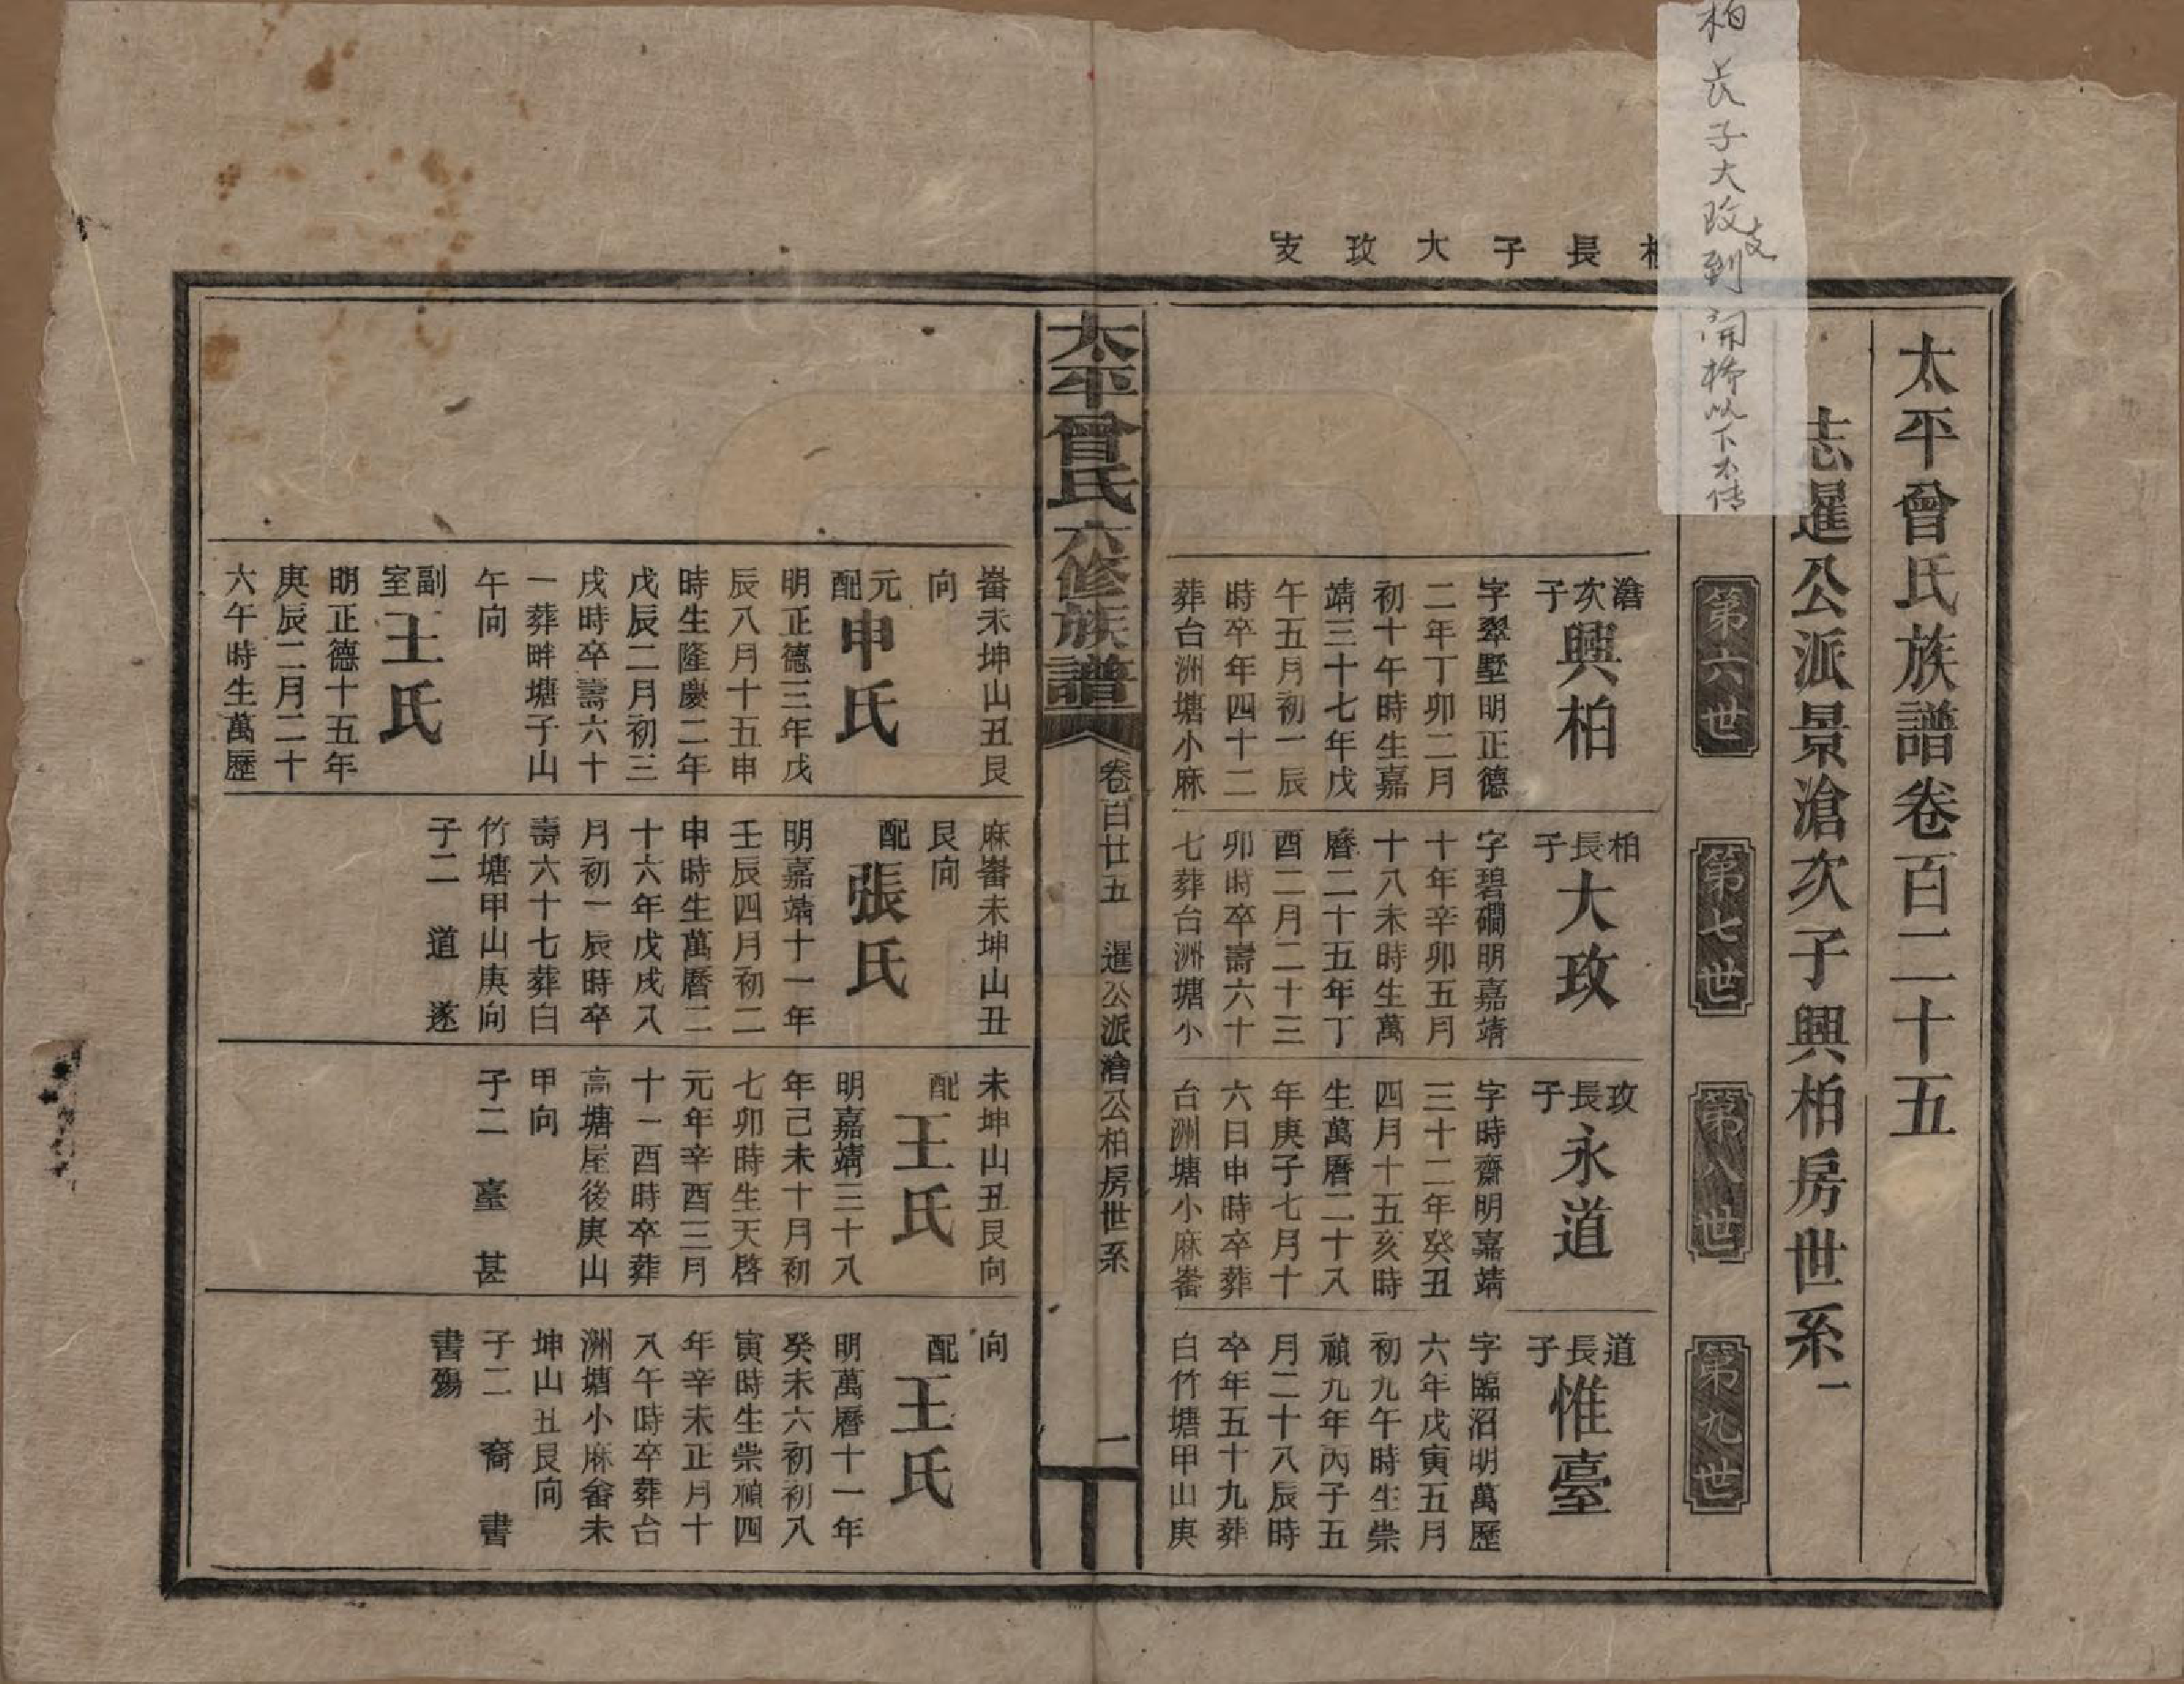 柏長子大玫支到開㭎以下不傳
柏長子大玫支
太平曾氏族譜卷百二十五
志暹公派景滄次子興柏房世系一
第六世
第七世
第八世
第九世
滄次子
興柏
字翠墅明正德
二年丁卯二月
初十午時生嘉
靖三十七年戊
午五月初一辰
時卒年四十二
葬台洲塘小麻
柏長子
大玫
字碧磵明嘉靖
十年辛卯五月
十八未時生萬
曆二十五年丁
酉二月二十三
卯時卒壽六十
七葬台洲塘小
玫長子
永道
字時齋明嘉靖
三十二年癸丑
四月十五亥時
生萬曆二十八
年庚子七月十
六日申時卒葬
台洲塘小麻畬
道長子
惟臺
字臨沼明萬歷
六年戊寅五月
初九午時生崇
禎九年丙子五
月二十八辰時
卒年五十九葬
白竹塘甲山庚
太平曾氏六修族譜
卷百廿五 暹公派滄公柏房世系
一
畬未坤山丑艮
向
元配
申氏
明正德三年戊
辰八月十五申
時生隆慶二年
戊辰二月初三
戌時卒壽六十
一葬畔塘子山
午向
副室
王氏
明正德十五年
庚辰二月二十
六午時生萬歷
麻畬未坤山丑
艮向
配
張氏
明嘉靖十一年
壬辰四月初二
申時生萬曆二
十六年戊戌八
月初一辰時卒
壽六十七葬白
竹塘甲山庚向
子二 道 遂
未坤山丑艮向
配
王氏
明嘉靖三十八
年己未十月初
七卯時生天啓
元年辛酉三月
十一酉時卒葬
高塘屋後庚山
甲向
子二 臺 甚
向
配
王氏
明萬曆十一年
癸未六初初八
寅時生崇禎四
年辛未正月十
八午時卒葬台
洲塘小麻畬未
坤山丑艮向
子二 裔 書
書殤